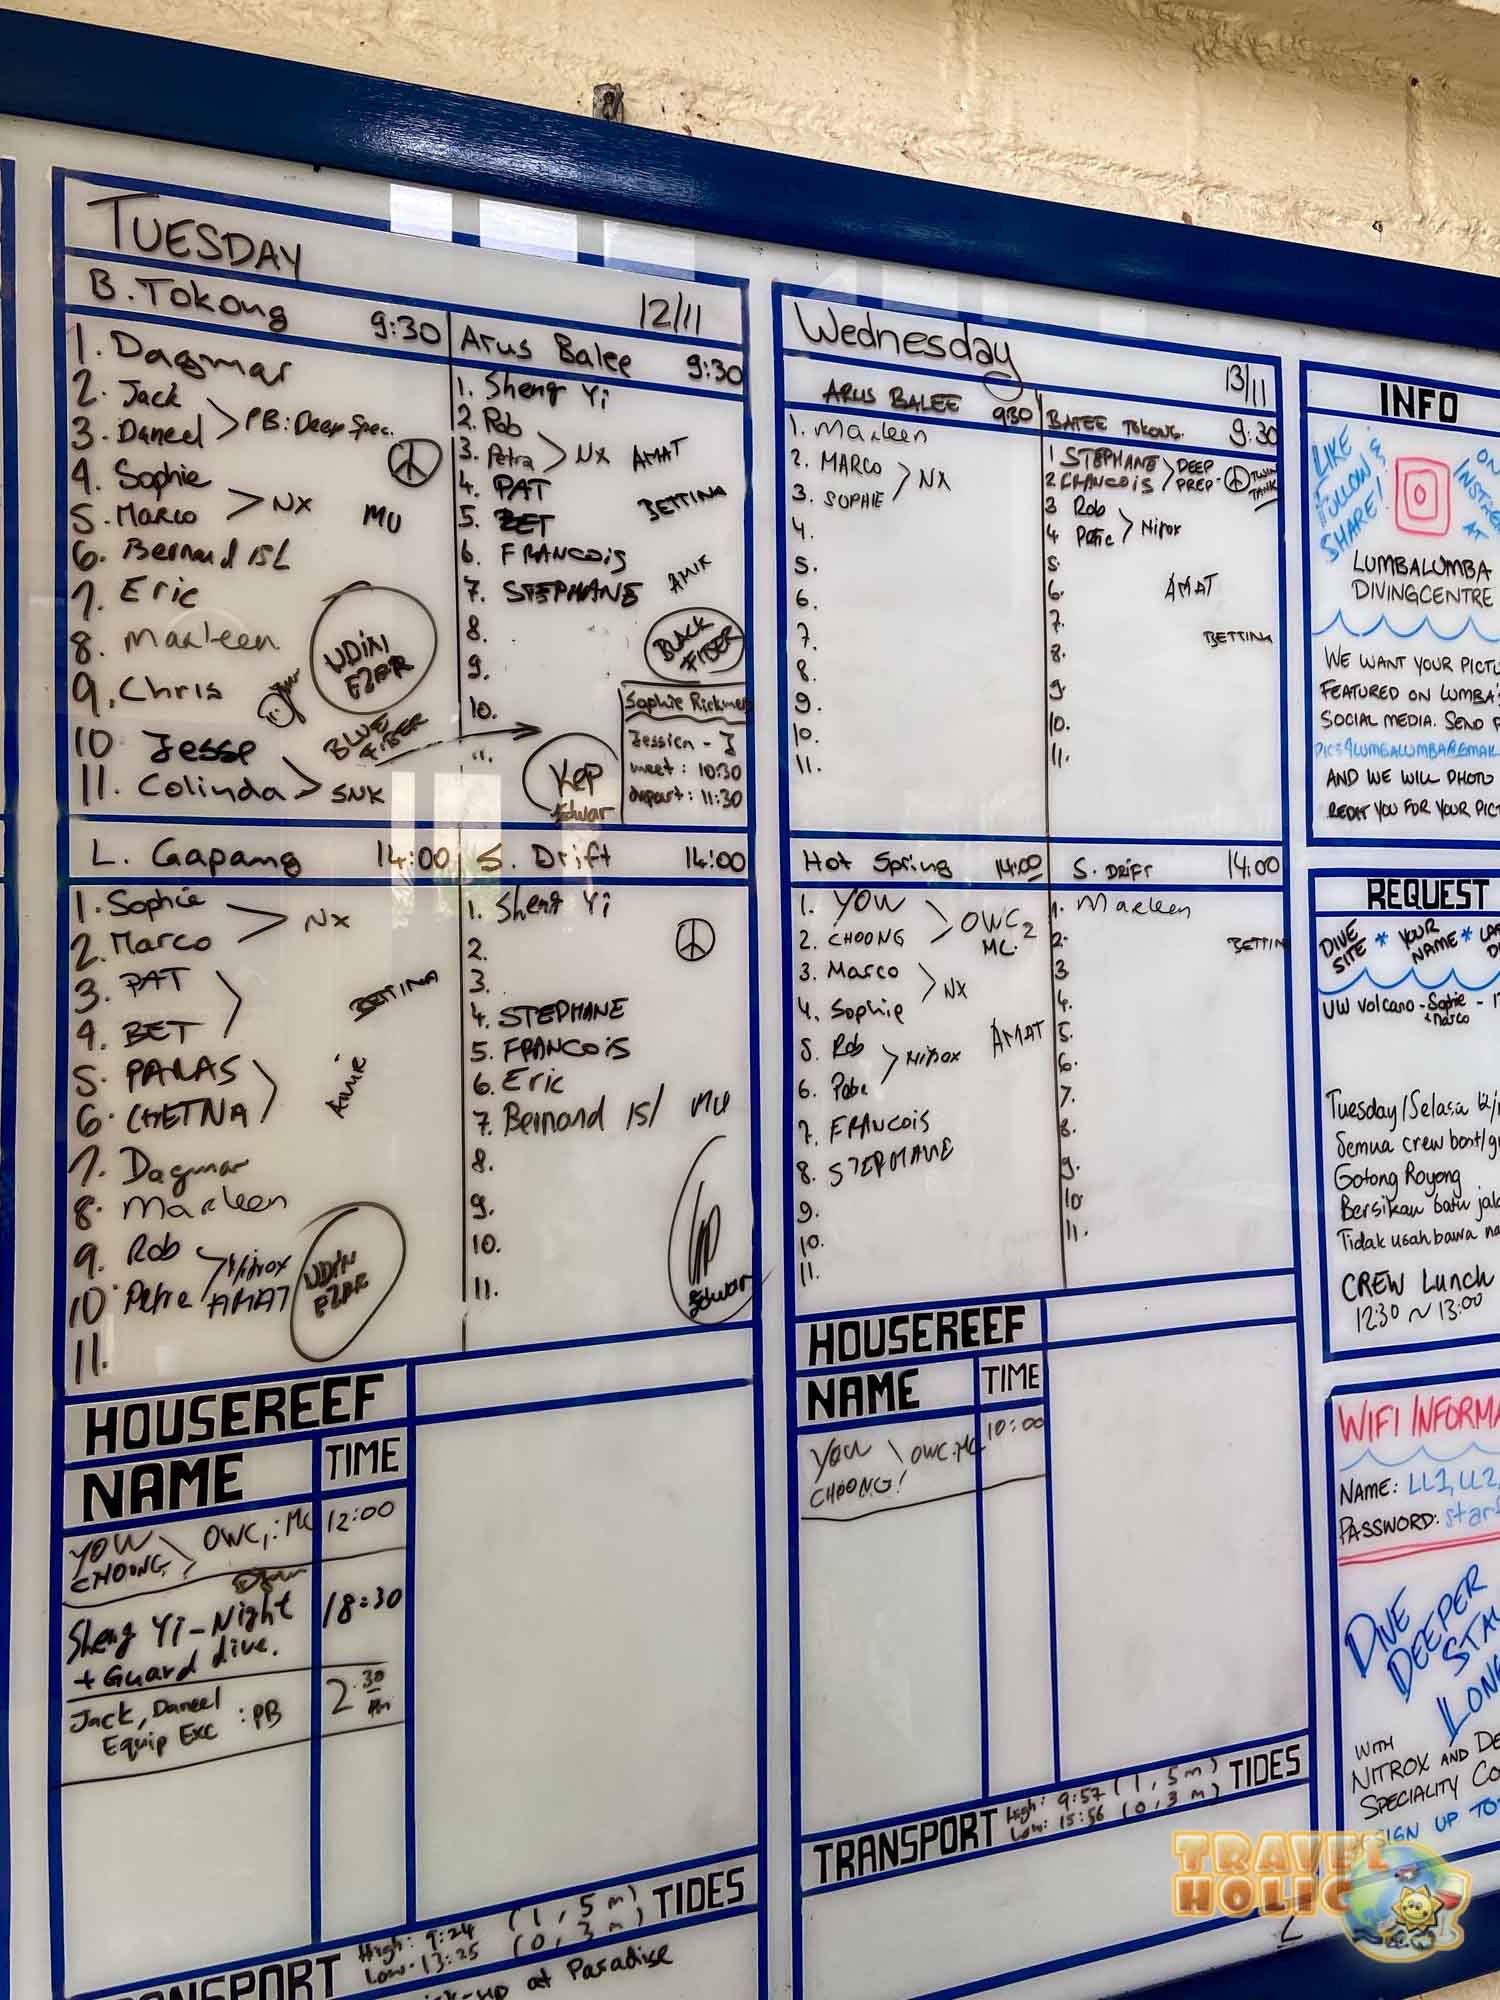 TUESDAY
12/11
B. Tokong 9:30
1. Dagmar
2. Jack
3. Daneel
PB: Deep Spec.
4. Sophie
5. Marco
NX
MU
6. Bernard ISL
7. Eric
8. Marleen
9. Chris
UDIN
EZAR
10 Jesse
11. Colinda
SNK
BLUE
FIBER
Arus Balee 9:30
1. Sheng Yi
2. Rob
3. Petra
NX AMAT
4. PAT
BETTINA
5. BET
6. FRANCOIS
7. STEPHANE
AMIR
8.
9.
10.
11.
BLACK
FIBER
KEP
Edwar
Sophie Rickmers
meet: 10:30
depart: 11:30
L. Gapang 14:00
1. Sophie
2. Marco
NX
3. PAT
4. BET
BETTINA
5. PARAS
6. CHETNA
AMIR
7. Dagmar
8. Marleen
9. Rob
10 Petra
Nitrox
AMAT
UDIN
EZAR
11.
S. Drift 14:00
1. Sheng Yi
2.
3.
4. STEPHANE
5. FRANCOIS
6. Eric
7. Bernard ISL MU
8.
9.
10.
11.
Edwar
HOUSEREEF
NAME TIME
YOW
CHOONG
OWC,: MC 12:00
Sheng Yi - Night
+ Guard dive.
18:30
Jack, Daneel
Equip Exc : PB
2.30
PM
TRANSPORT
High: 9:24 (1,5 m)
Low: 13:25 (0,3 m)
TIDES
at Paradise
Wednesday
13/11
ARUS BALEE 930
1. Marleen
2. MARCO
3. SOPHIE
NX
4.
5.
6.
7.
8.
9.
10.
11.
BATEE TOKONG. 9:30
1 STEPHANE
2 FRANCOIS
DEEP
PREP-
TWIN
TANK
3 Rob
4 Petra
Nitrox
5
6.
AMAT
7.
BETTINA
8.
9.
10.
11.
Hot Spring 14:00
1. YOW
2. CHOONG
OWC2
MC.
3. Marco
4. Sophie
NX
5. Rob
6. Petra
Nitrox
AMAT
7. FRANCOIS
8. STEPHANE
9.
10.
11.
S. DRIFT 14:00
1. Marleen
2.
BETTIN
3
4.
5.
6.
7.
8.
9.
10
11.
HOUSEREEF
NAME TIME
YOW
CHOONG!
OWC: MC 10:00
TRANSPORT
High: 9:57 (1,5 m)
Low: 15:56 (0,3 m)
TIDES
INFO
LIKE
FOLLOW &
SHARE!
ON
AT
LUMBALUMBA
DIVINGCENTRE
WE WANT YOUR PICTU
FEATURED ON LUMBA'S
SOCIAL MEDIA. SEND
AND WE WILL PHOTO
CREDIT YOU FOR YOUR PICT
REQUEST
DIVE
SITE * YOUR
NAME *
UW Volcano - Sophie
+ Marco
Tuesday/Selasa 12/
Semua crew boat/g
Gotong Royong
Bersikan batu jal
Tidak usah bawa na
CREW Lunch
12:30 ~ 13:00
WIFI INFORMA
NAME: LL1, LL2,
PASSWORD: star
DIVE
DEEPER
STAY
LONG
WITH
NITROX AND DE
SPECIALITY CO
SIGN UP TO
TRAVEL
HOLIC